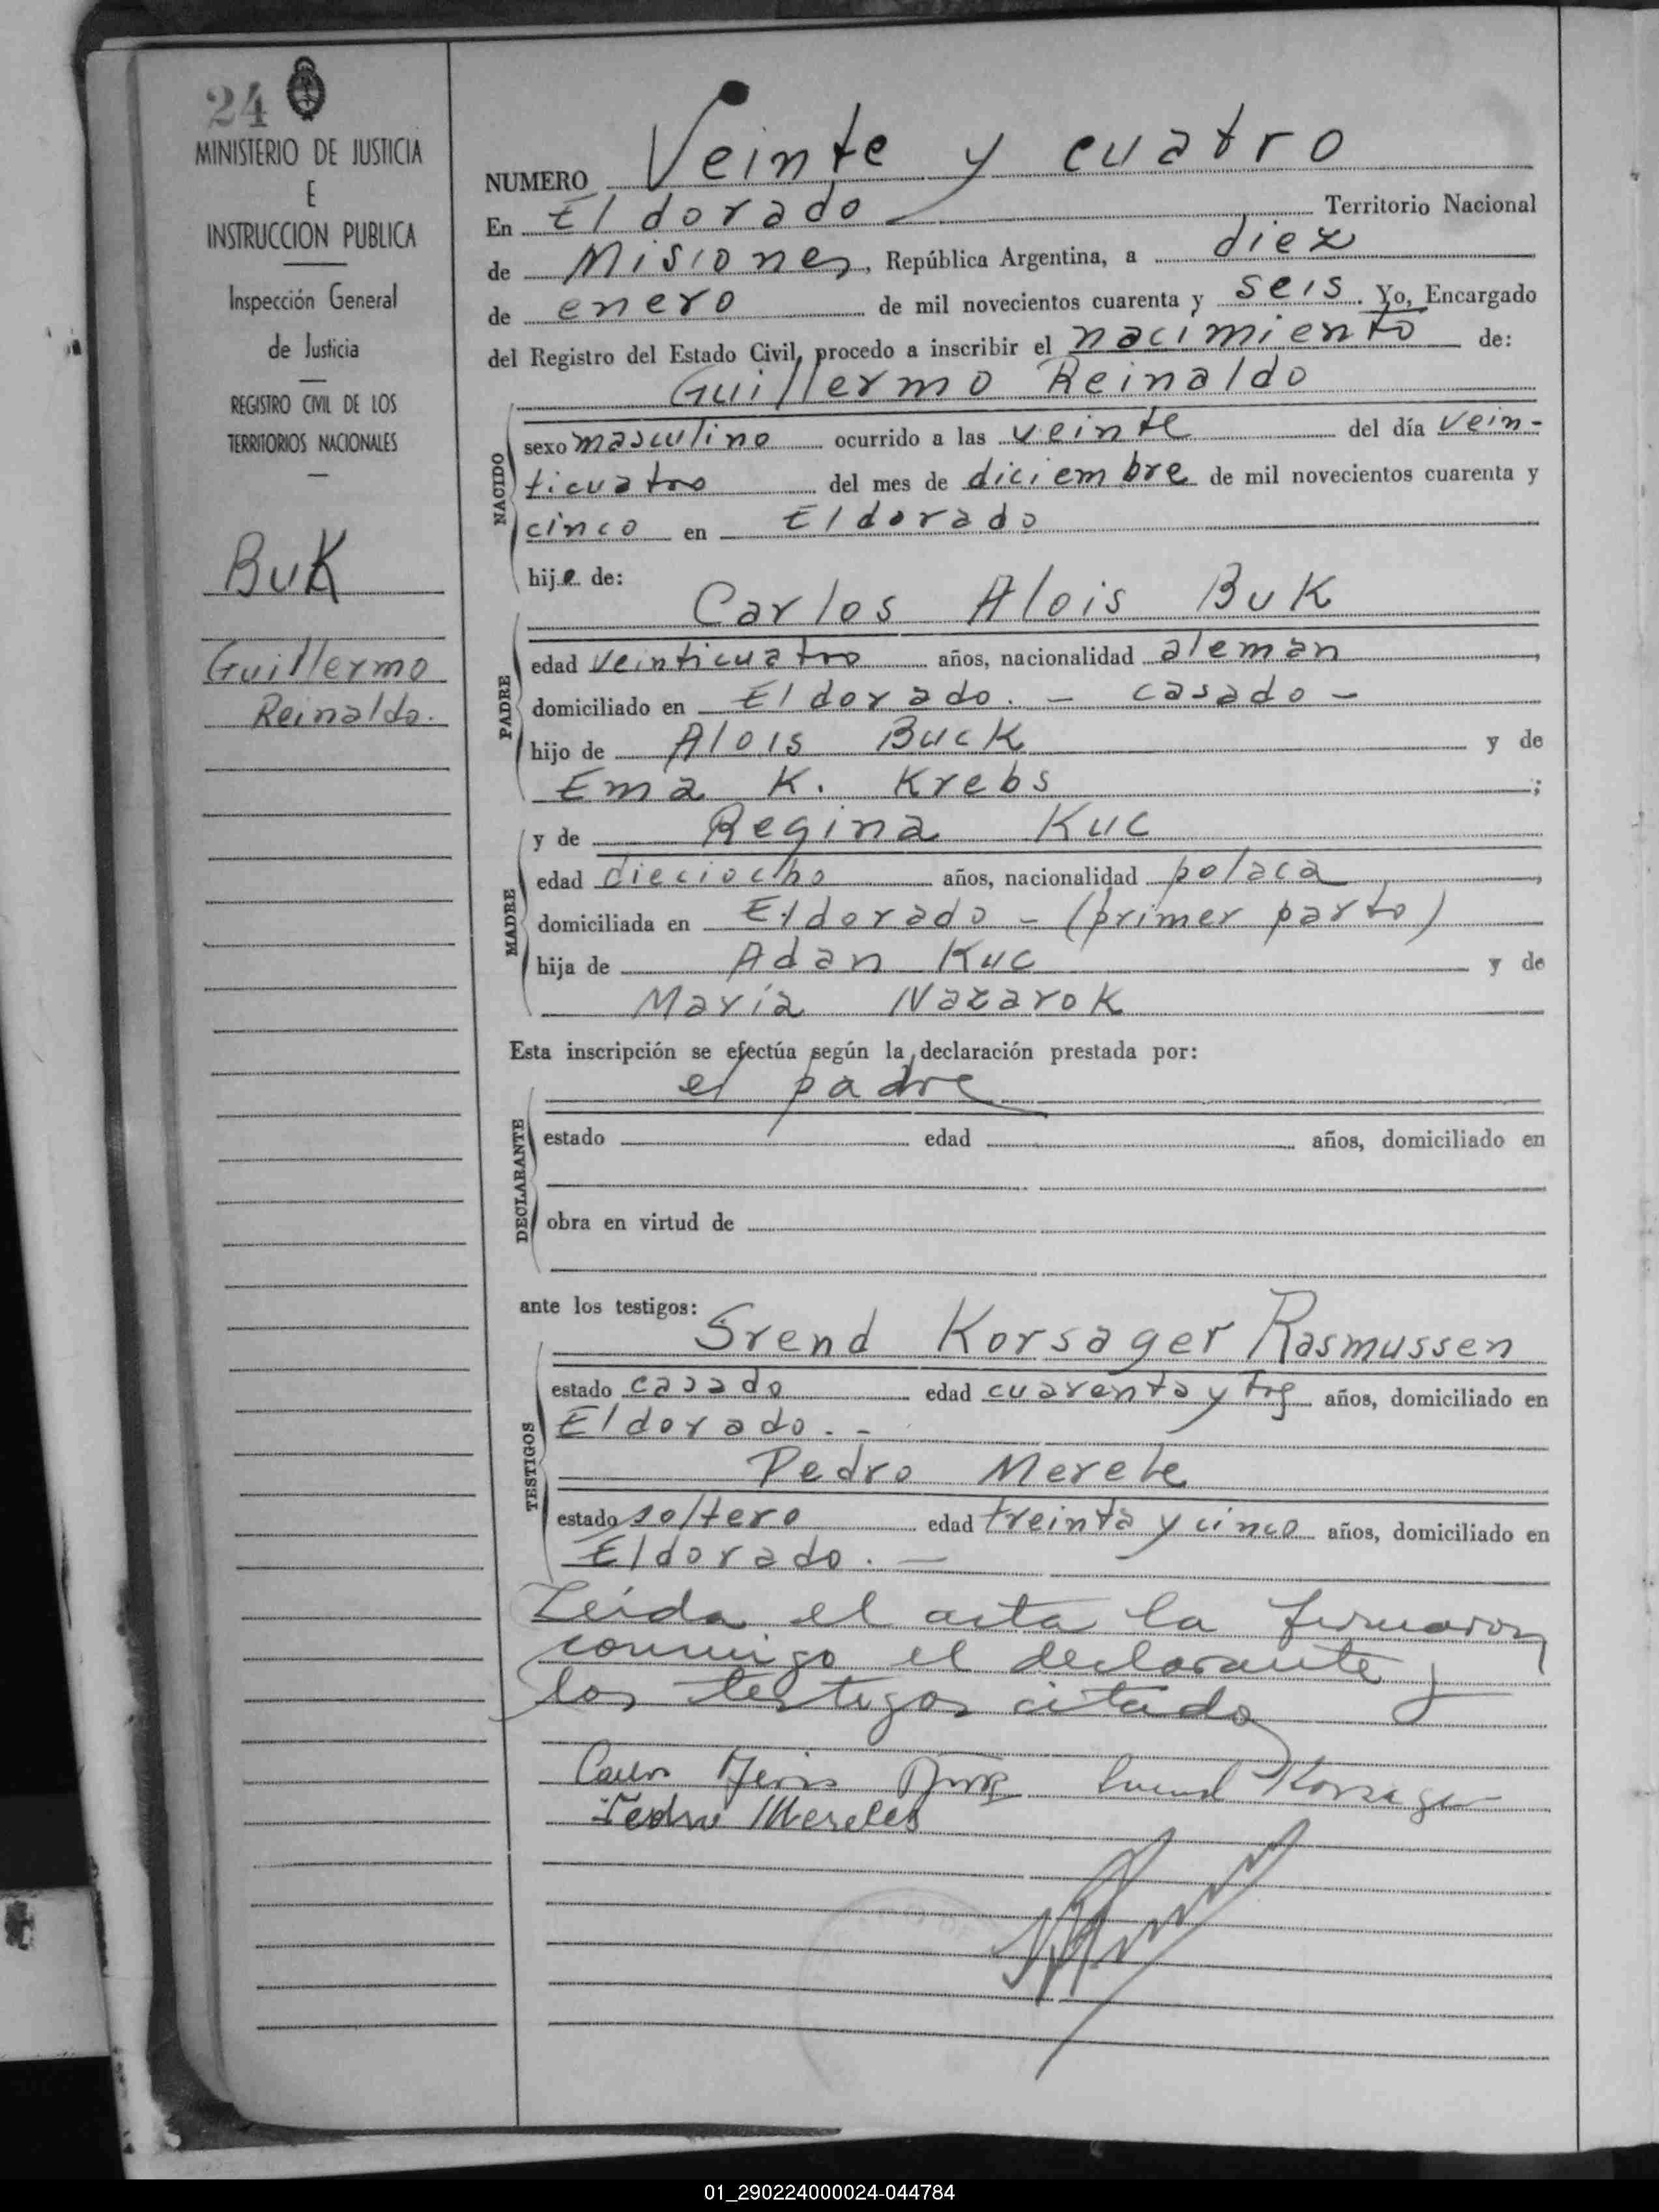 24
MINISTERIO DE JUSTICIA
E
INSTRUCCION PUBLICA
Inspección General
de Justicia
REGISTRO CIVIL DE LOS
TERRITORIOS NACIONALES
Buk
Guillermo
Reinaldo.
NUMERO Veinte y cuatro
En Eldorado Territorio Nacional
de Misiones, República Argentina, a diez
de enero de mil novecientos cuarenta y seis. Yo, Encargado
del Registro del Estado Civil, procedo a inscribir el nacimiento de:
Guillermo Reinaldo
NACIDO
sexo masculino ocurrido a las veinte del día vein-
ticuatro del mes de diciembre de mil novecientos cuarenta y
cinco en Eldorado
hijo de:
Carlos Alois Buk
PADRE
edad veinticuatro años, nacionalidad aleman,
domiciliado en Eldorado. - casado -
hijo de Alois Buck y de
Ema K. Krebs;
y de Regina Kuc
MADRE
edad dieciocho años, nacionalidad polaca,
domiciliada en Eldorado - (primer parto)
hija de Adan Kuc y de
María Nazarok
Esta inscripción se efectúa según la declaración prestada por:
el padre
DECLARANTE
estado edad años, domiciliado en
obra en virtud de
ante los testigos:
Svend Korsager Rasmussen
TESTIGOS
estado casado edad cuarenta y tres años, domiciliado en
Eldorado. -
Pedro Merele
estado soltero edad treinta y cinco años, domiciliado en
Eldorado. -
Leída el acta la firmaron
conmigo el declarante y
los testigos citados
Carlos Alois Svend Korsager
Pedro Mereles
01_290224000024-044784